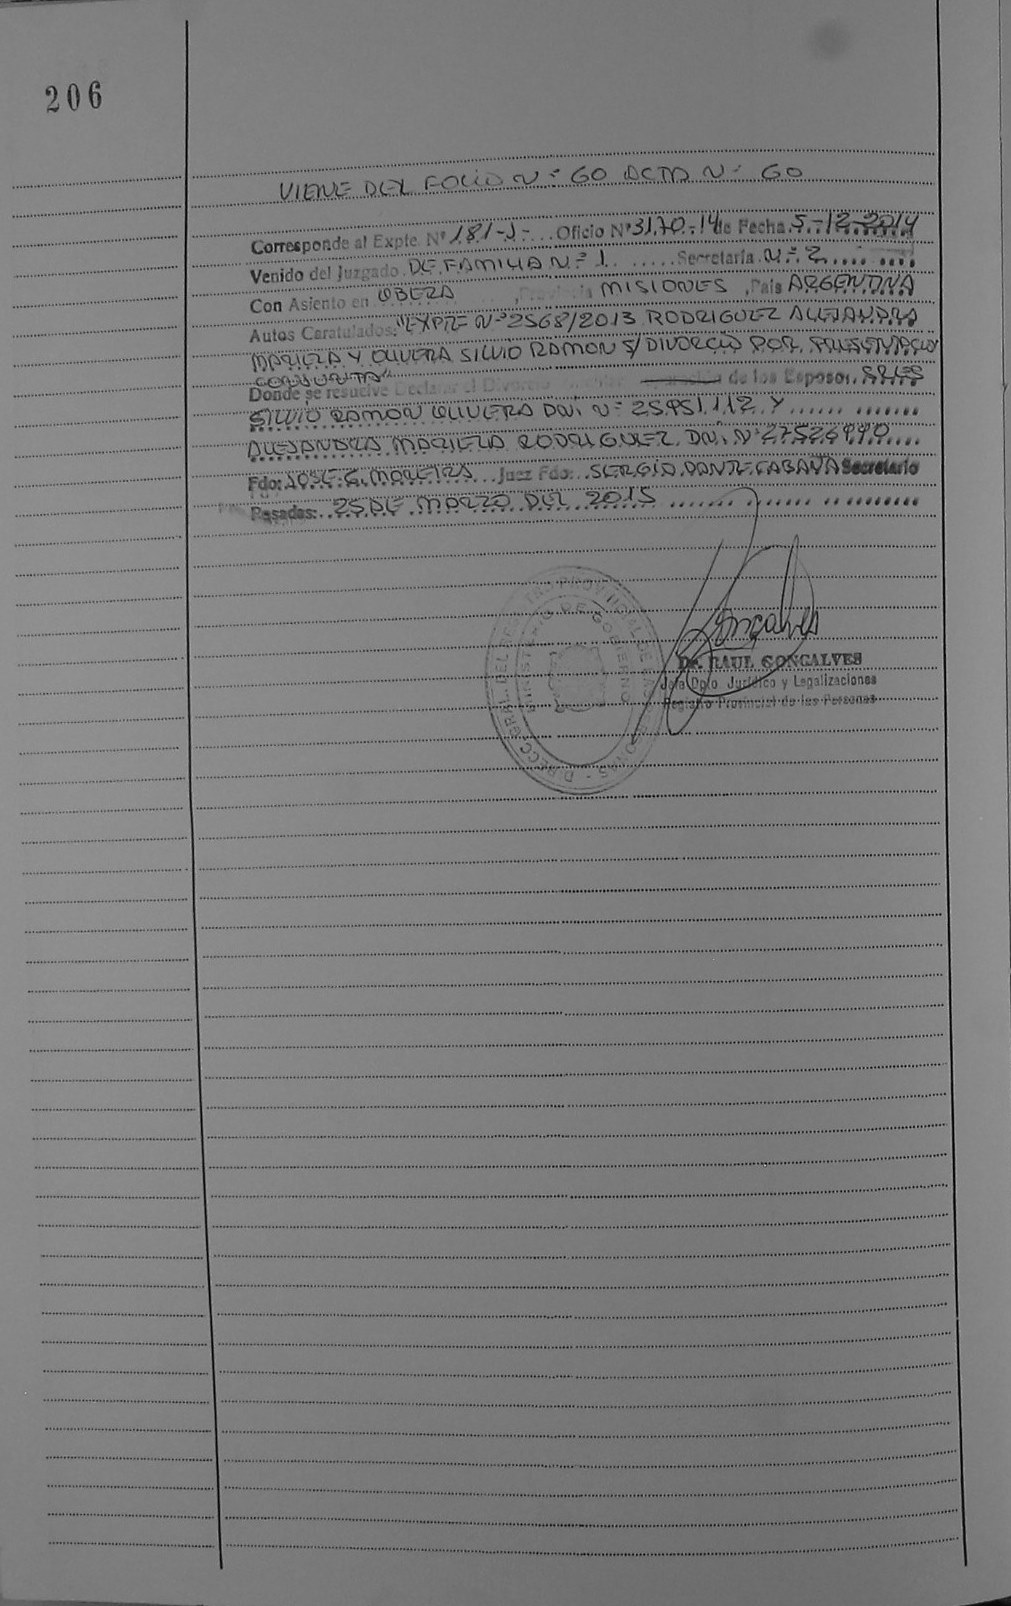 206
VIENE DEL FOLIO Nº 60 ACTA Nº 60
Corresponde al Expte. Nº 181-J- Oficio Nº 3170-14 de Fecha 5-12-2014
Venido del Juzgado DE FAMILIA Nº 1 Secretaria Nº 2
Con Asiento en OBERA, Provincia MISIONES, Pais ARGENTINA
Autos Caratulados: "EXPTE Nº 2568/2013 RODRIGUEZ ALEJANDRA
MARIELA Y OLIVERA SILVIO RAMON S/ DIVORCIO POR PRESENTACION
CONJUNTA"
Donde se resuelve Declarar el Divorcio de los Esposos. SRES
SILVIO RAMON OLIVERA DNI Nº 25.951.112 Y
ALEJANDRA MARIELA RODRIGUEZ DNI Nº
Fdo: JOSE G. MOREIRA Juez Fdo: SERGIO DANTE CABAÑA Secretario
Posadas: 25 DE MARZO DEL 2015
Goncalves
Dr. RAUL GONCALVES
Jefe Dpto. Jurídico y Legalizaciones
Registro Provincial de las Personas
MINISTERIO DE GOBIERNO